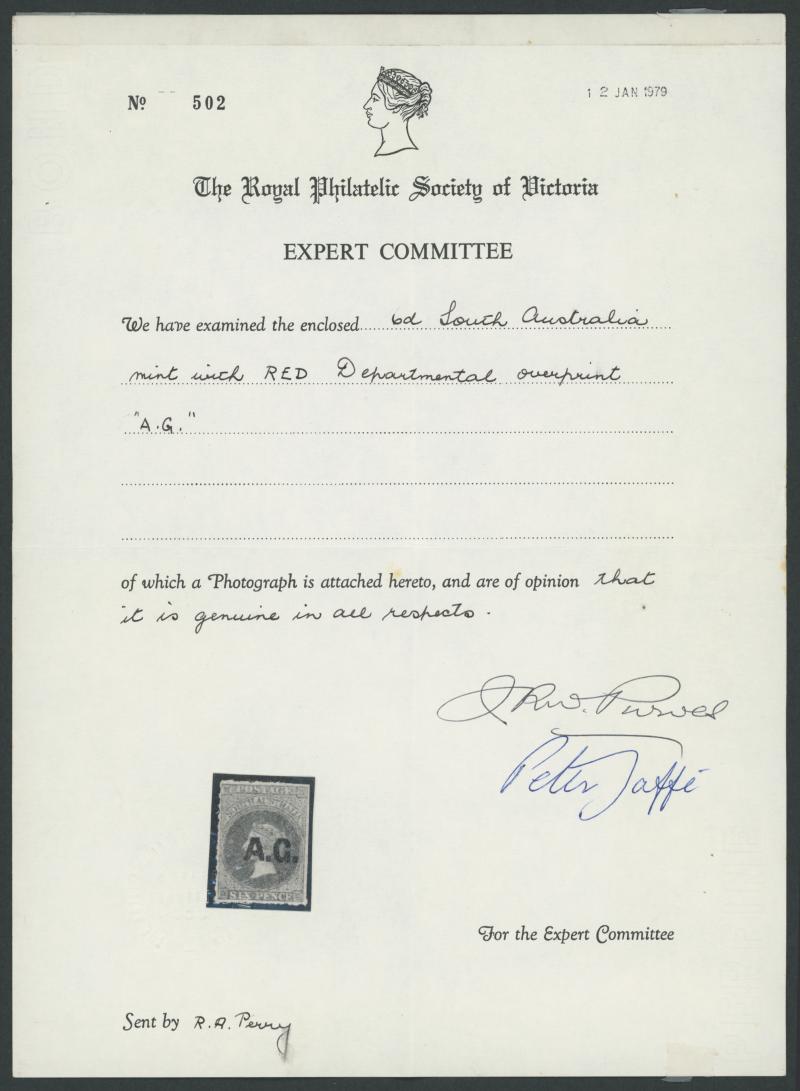 No 502
12 JAN 1979
The Royal Philatelic Society of Victoria
EXPERT COMMITTEE
We have examined the enclosed 6d South Australia
mint with RED Departmental overprint
"A.G."
of which a Photograph is attached hereto, and are of opinion that
it is genuine in all respects.
J R W. Purves
Peter Jaffé
POSTAGE
SOUTH AUSTRALIA
A.G.
SIX PENCE
For the Expert Committee
Sent by R.A. Perry